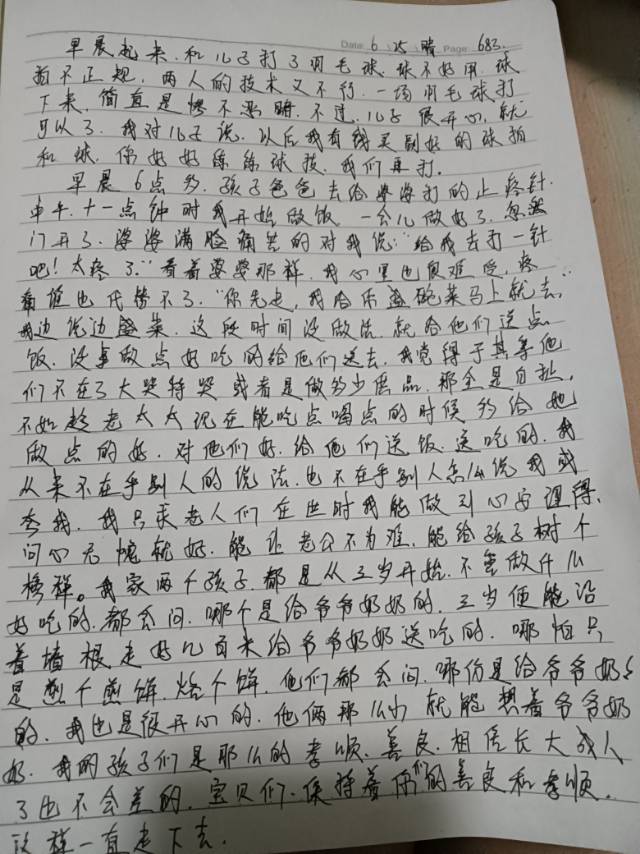 Date: 6 25 晴 Page: 683.
早晨起来,和儿子打了羽毛球,球不好用,球
拍不正规,两人的技术又不行,一场羽毛球打
下来,简直是惨不忍睹,不过,儿子很开心,就
可以了,我对儿子说,以后我有钱买副好的球拍
和球,你好好练练球技,我们再打.
早晨6点多,孩子爸爸去给婆婆打的止疼针.
中午,十一点钟时我开始做饭,一会儿做好了,忽然
门开了,婆婆满脸痛苦的对我说:"给我去打一针
吧!太疼了."看着婆婆那样,我心里也很难受,疼
也代替不了."你先走,我给币盛碗菜马上就去,
我边说边盛菜,这段时间没做法,就给他们送点
饭,没事做点好吃的给他们送去,我觉得于其等他
们不在了大哭特哭或者是做多少供品,那全是白扯,
不如趁老太太现在能吃点喝点的时候多给她
做点的好,对他们好,给他们送饭,送吃的,我
从来不在乎别人的说法,也不在乎别人怎么说我或
我,我只求老人们在世时我能做到心安理得,
问心无愧就好,能让老公不为难,能给孩子树个
榜样。我家两个孩子,都是从三岁开始,不管做什么
好吃的,都会问,哪个是给爷爷奶奶的,三岁便能沿
着墙根走好几百米给爷爷奶奶送吃的,哪怕只
是煎个煎饼,烙个饼,他们都会问,哪份是给爷爷奶奶
的,我也是很开心的,他俩那么小就能想着爷爷奶
奶,我的孩子们是那么的孝顺、善良,相信长大成人
了也不会差的,宝贝们,保持着你们的善良和孝顺,
这样一直走下去.